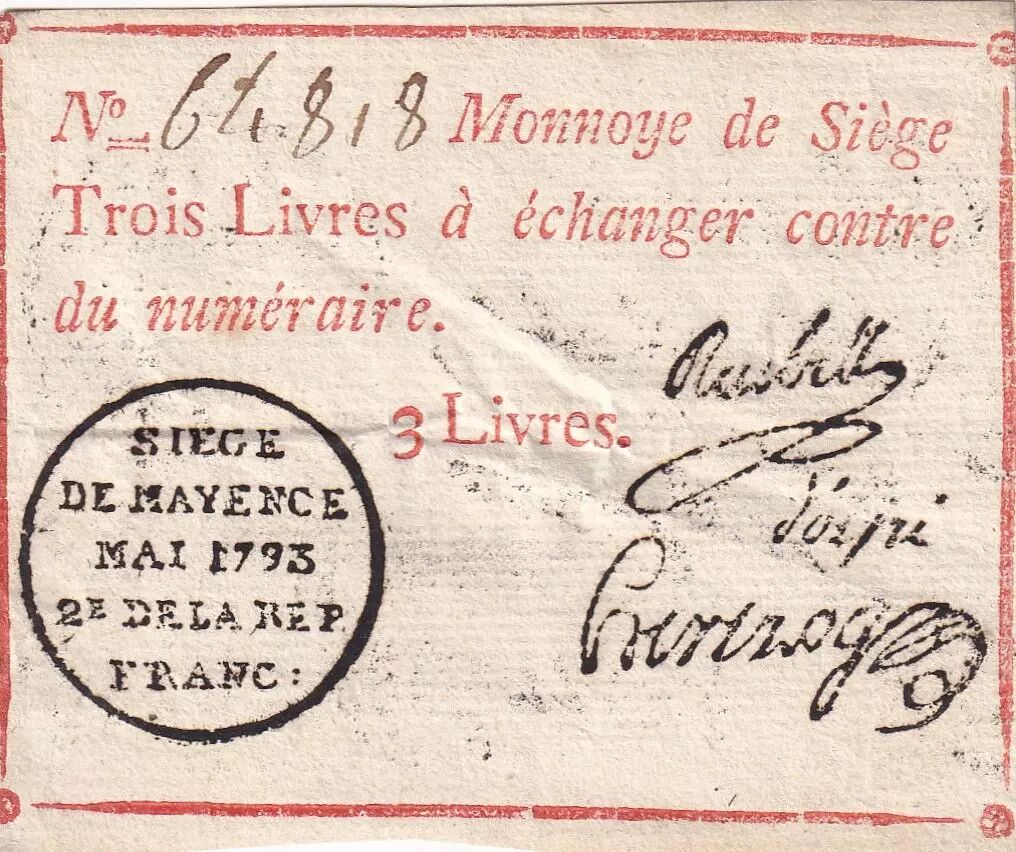 No 64818 Monnoye de Siège
Trois Livres à échanger contre
du numéraire.
3 Livres.
SIEGE
DE MAYENCE
MAI 1793
2E DE LA REP
FRANC: